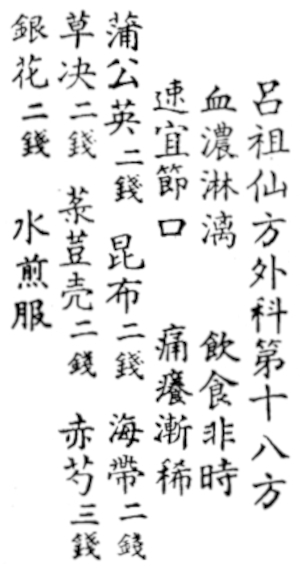 呂祖仙方外科第十八方
血濃淋漓 飲食非時
速宜節口 痛癢漸稀
蒲公英二錢 昆布二錢 海帶二錢
草决二錢 菉荳壳二錢 赤芍三錢
銀花二錢 水煎服